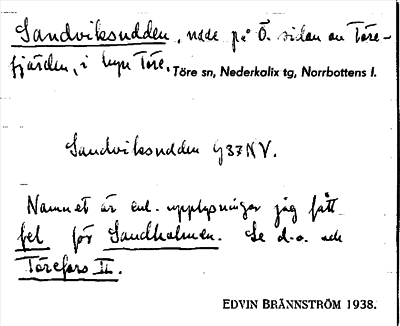 Sandviksudden, udde på Ö. sidan av Töre-
fjärden, i byn Töre. Töre sn, Nederkalix tg, Norrbottens l.
Sandviksudden g37NV.
Namnet är enl. upplysningar jag fått
fel för Sandholmen. Se d.o. och
Törefors II.
EDVIN BRÄNNSTRÖM 1938.